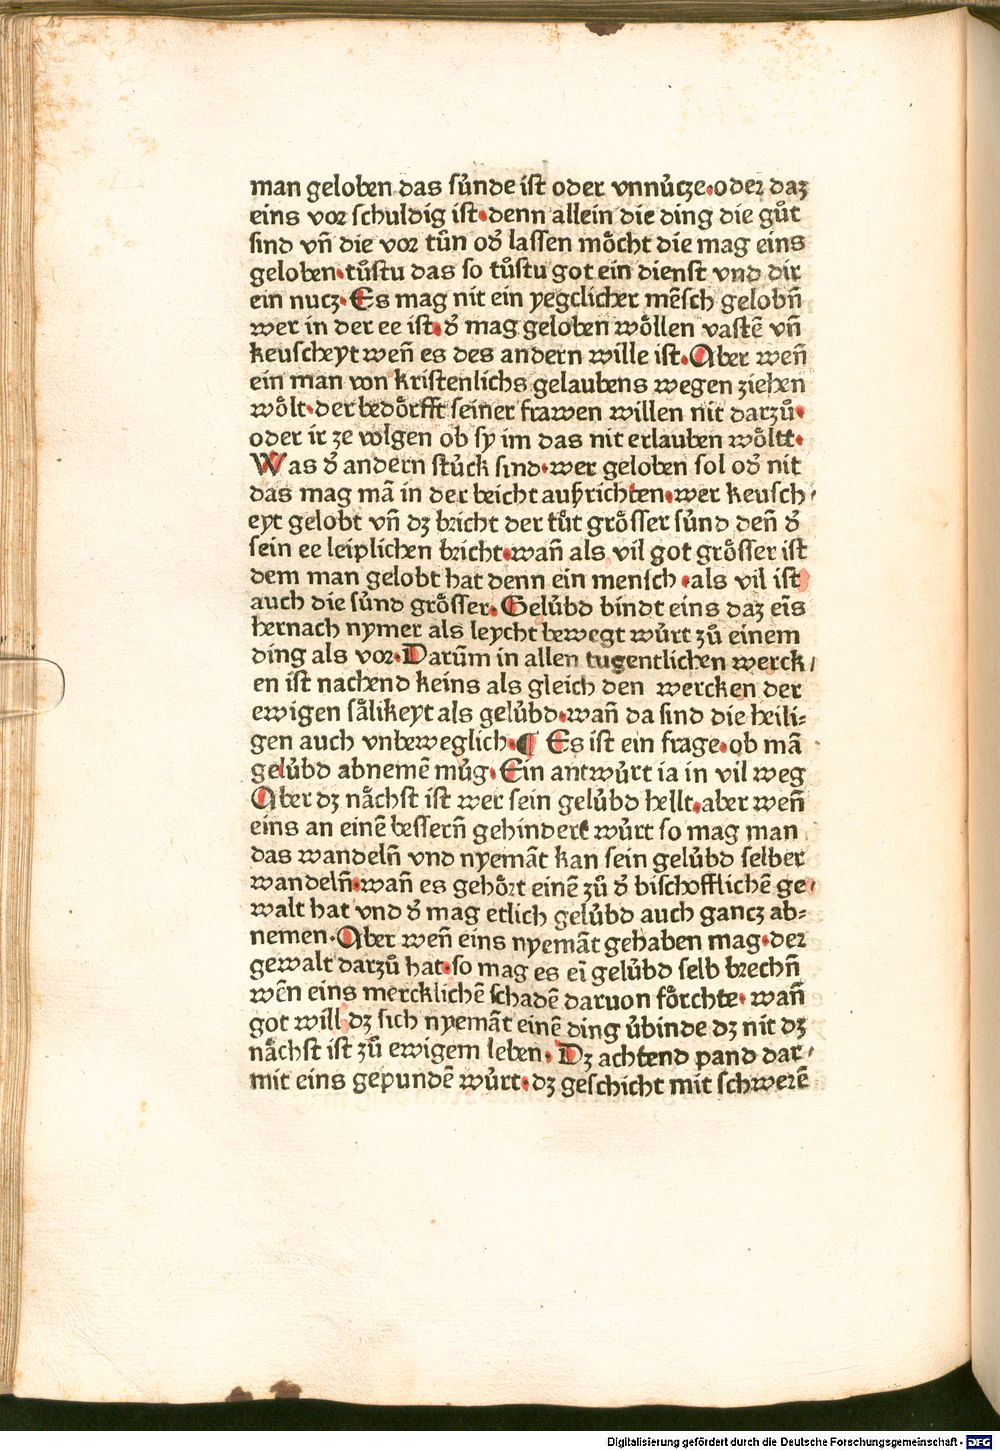 man geloben das sünde ist oder vnnücze·oder daz
eins vor schuldig ist·denn allein die ding die gůt
sind vñ die vor tůn od̕ lassen möcht die mag eins
geloben·tůstu das so tůstu got ein dienst vnd dir
ein nucz·Es mag nit ein yegclicher mẽsch gelobñ
wer in der ee ist·d̕ mag geloben wöllen vastẽ vñ
keuscheyt weñ es des andern wille ist·Aber weñ
ein man von kristenlichs gelaubens wegen ziehen
wölt·der bedörfft seiner frawen willen nit darzů·
oder ir ze volgen ob sy im das nit erlauben wöltt·
Was d̕ andern stück sind·wer geloben sol od̕ nit
das mag mã in der beicht außrichten·wer keusch⸗
eyt gelobt vñ dz bricht der tůt grösser sünd deñ d̕
sein ee leiplichen bricht·wañ als vil got grösser ist
dem man gelobt hat denn ein mensch·als vil ist
auch die sünd grösser·Gelübd bindt eins daz eĩs
hernach nymer als leycht bewegt würt zů einem
ding als vor·Darũm in allen tugentlichen werck⸗
en ist nachend keins als gleich den wercken der
ewigen sälikeyt als gelübd·wañ da sind die heili⸗
gen auch vnbeweglich·¶ Es ist ein frage·ob mã
gelübd abnemẽ müg·Ein antwürt ia in vil weg
Aber dz nächst ist wer sein gelübd hellt·aber weñ
eins an einẽ bessern̄ gehindert würt so mag man
das wandelñ vnd nyemãt kan sein gelübd selber
wandelñ·wañ es gehört einẽ zů d̕ bischofflichẽ ge⸗
walt hat vnd d̕ mag etlich gelübd auch gancz ab⸗
nemen·Aber weñ eins nyemãt gehaben mag·der
gewalt darzů hat·so mag es eĩ gelübd selb brechñ
wẽn eins mercklichẽ schadẽ daruon förchte·wañ
got will dz sich nyemãt einẽ ding übinde dz nit dz
nächst ist zů ewigem leben·Dz achtend pand dar⸗
mit eins gepundẽ würt·dz geschicht mit schwerẽ
Digitalisierung gefördert durch die Deutsche Forschungsgemeinschaft - DFG